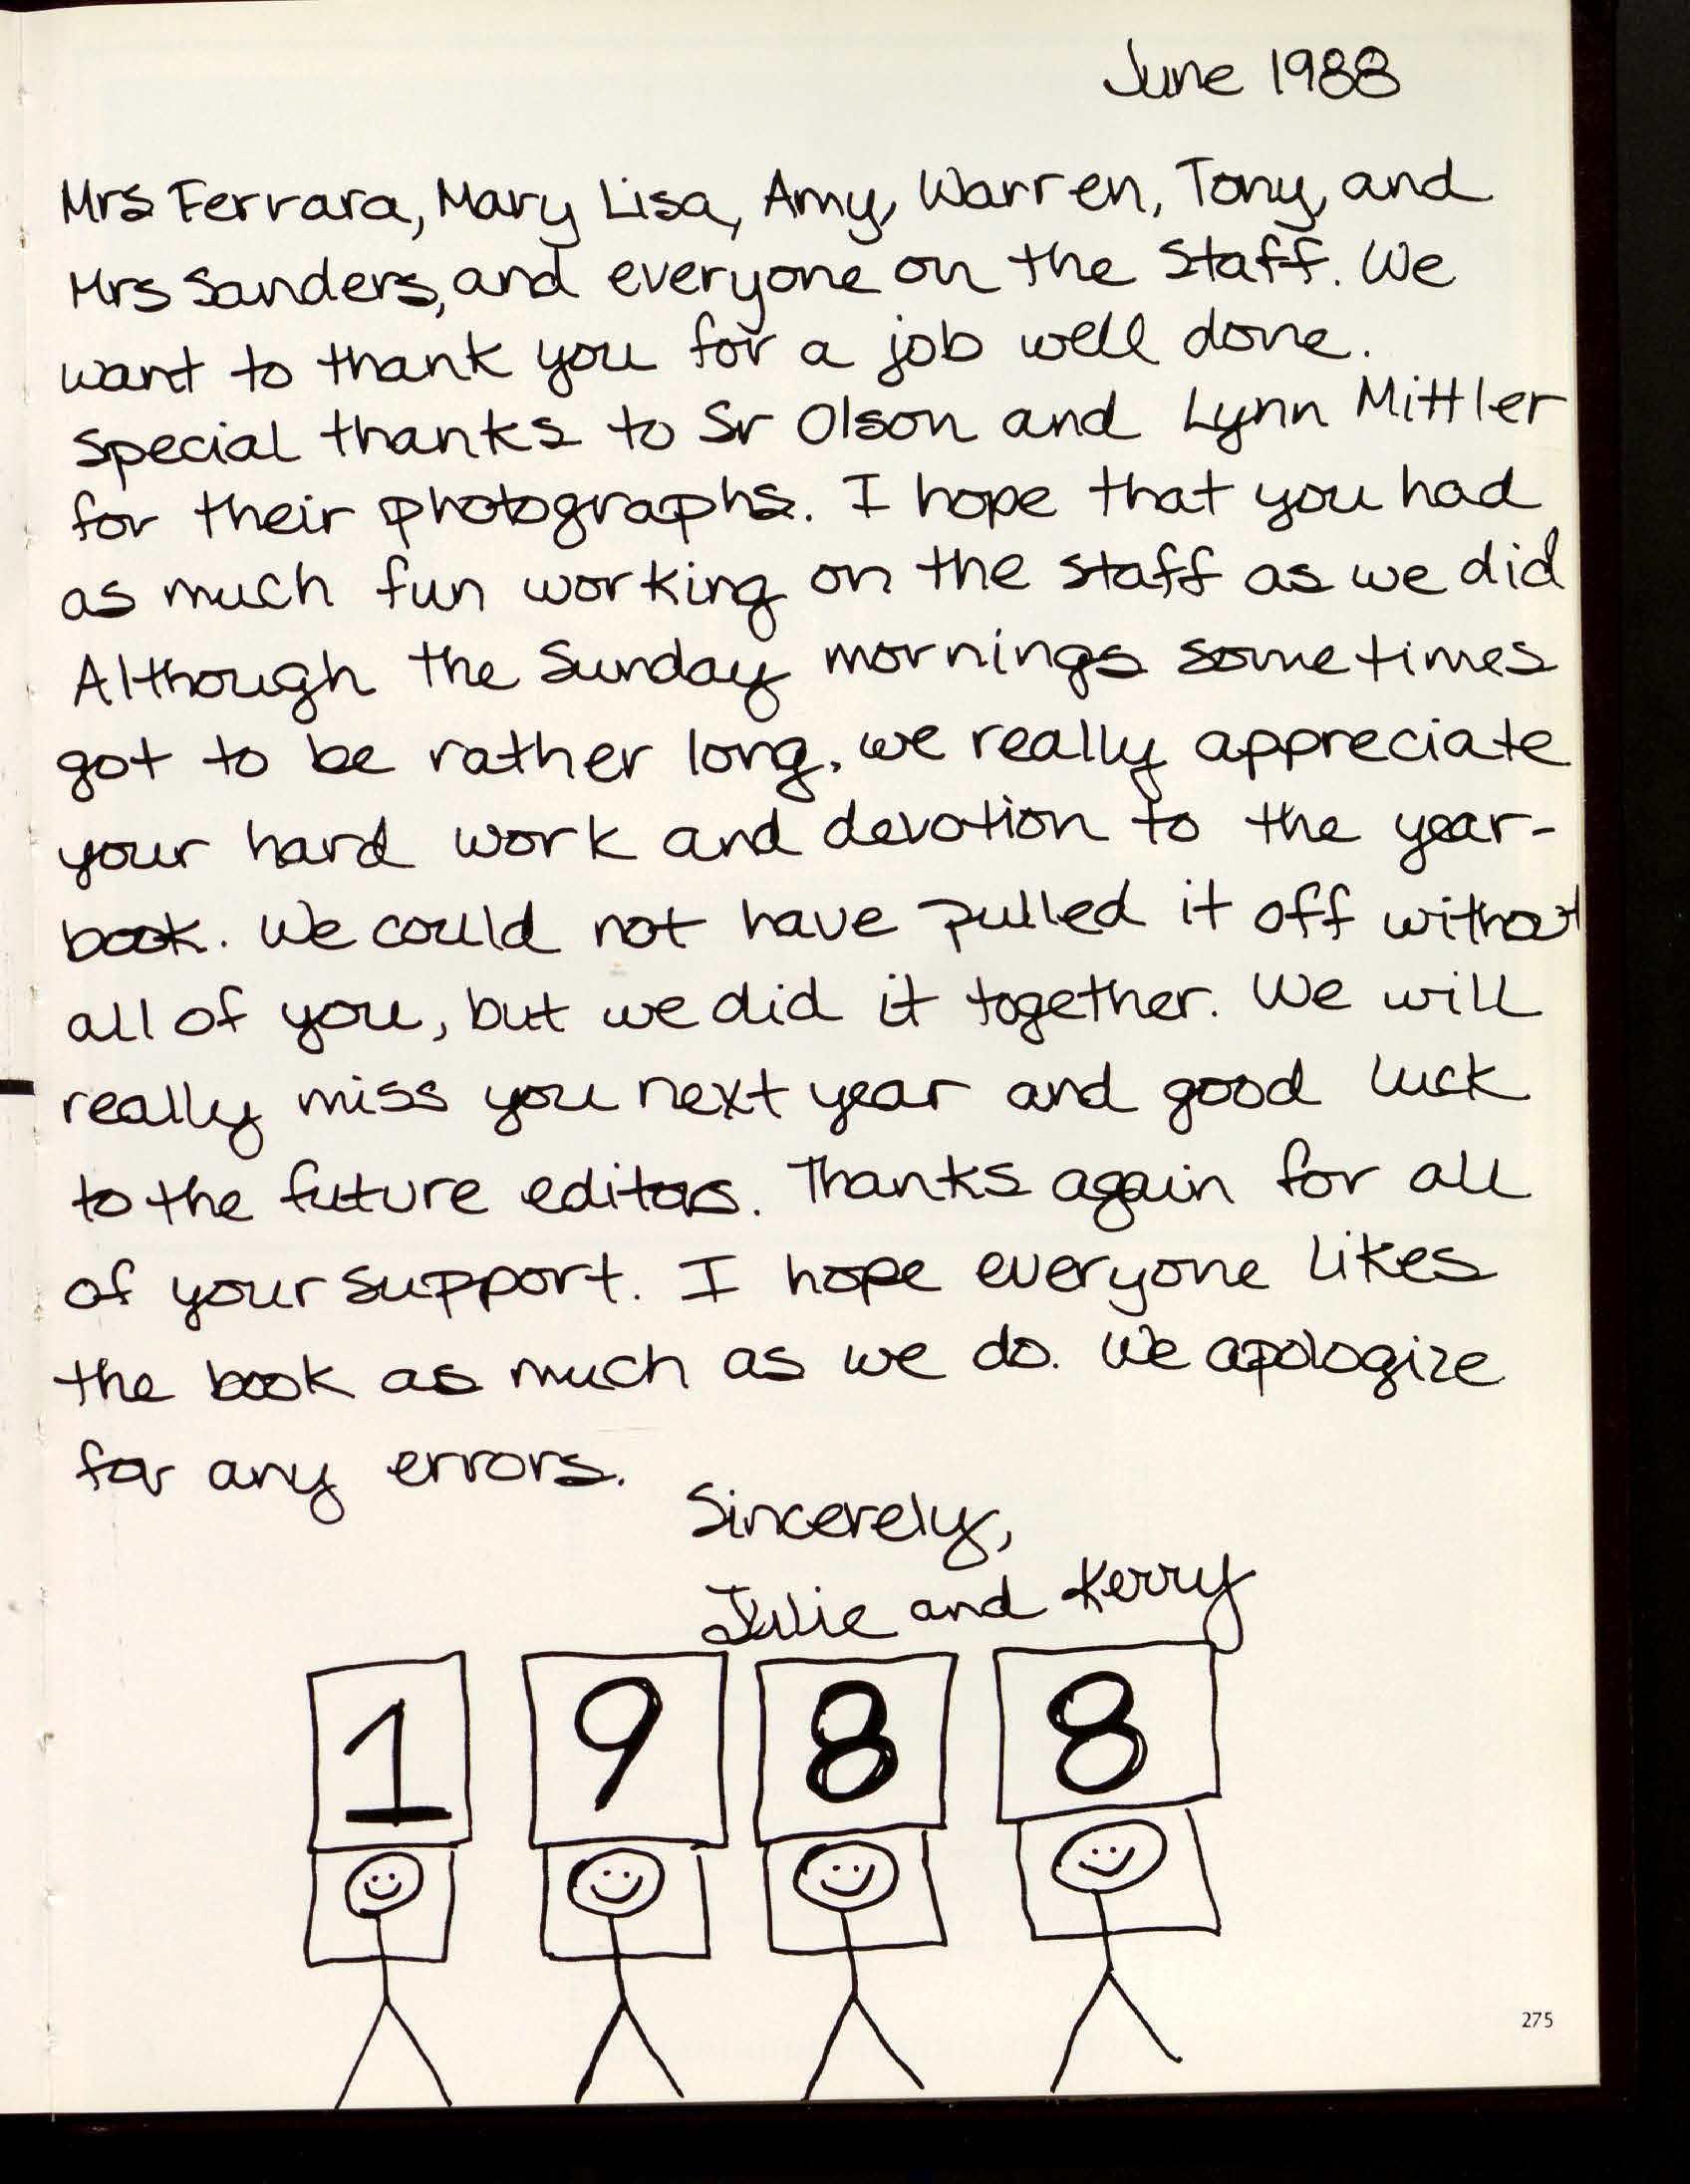 June 1988
Mrs Ferrara, Mary Lisa, Amy, Warren, Tony, and
Mrs Sanders, and everyone on the Staff. We
want to thank you for a job well done.
Special thanks to Sr Olson and Lynn Mittler
for their photographs. I hope that you had
as much fun working on the staff as we did
Although the Sunday mornings sometimes
got to be rather long, we really appreciate
your hard work and devotion to the year-
book. We could not have pulled it off without
all of you, but we did it together. We will
really miss you next year and good luck
to the future editors. Thanks again for all
of your support. I hope everyone likes
the book as much as we do. We apologize
for any errors.
Sincerely,
Julie and Kerry
1 9 8 8
275